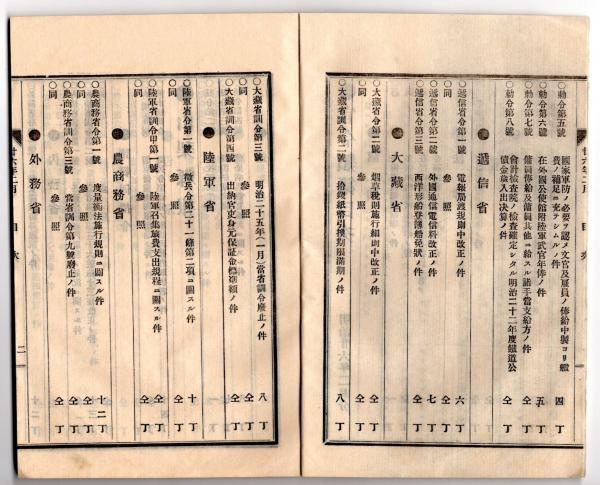 〇勅令第五號　國家軍防ノ必要ヲ認メ文官及雇員ノ俸給中製ヨリ艦
費ノ補足ニ充テシムルノ件　四丁
〇勅令第六號　在外國公使館附陸軍武官年俸ノ件　五丁
〇勅令第七號　傭員俸給及傭員其他ニ給スル諸手當支給方ノ件　仝丁
〇勅令第八號　會計檢査院ノ檢査確定シタル明治二十二年度鐵道公
債金歳入出決算ノ件　仝丁
●遞信省
〇遞信省令第一號　電報局渡規則中改正ノ件　六丁
〇同　參照　仝丁
〇遞信省令第二號　外國通信電信料改正ノ件　七丁
〇遞信省令第三號　西洋形船登簿船免狀ノ件　仝丁
●大藏省
〇大藏省令第一號　烟草稅則施行細則中改正ノ件　仝丁
〇同　參照　仝丁
〇大藏省訓令第二號　拾錢紙幣引換期限滿期ノ件　八丁
〇大藏省訓令第三號　明治二十五年(一月)當省訓令廢止ノ件　八丁
〇同　參照　仝丁
〇大藏省訓令第四號　出納官吏身元保証金標準額ノ件　仝丁
●陸軍省
〇陸軍省令第一號　徵兵令第二十一條第二項ニ關スル件　十丁
〇同　參照　仝丁
〇陸軍省訓令甲第一號　陸軍召集旅費支出規程ニ關スル件　仝丁
〇同　參照　仝丁
●農商務省
〇農商務省令第一號　度量衡法施行規則ニ關スル件　十二丁
〇農商務省訓令第三號　當省訓令第九號廢止ノ件　仝丁
〇同　參照　仝丁
●外務省
廿六年一月　目次　二